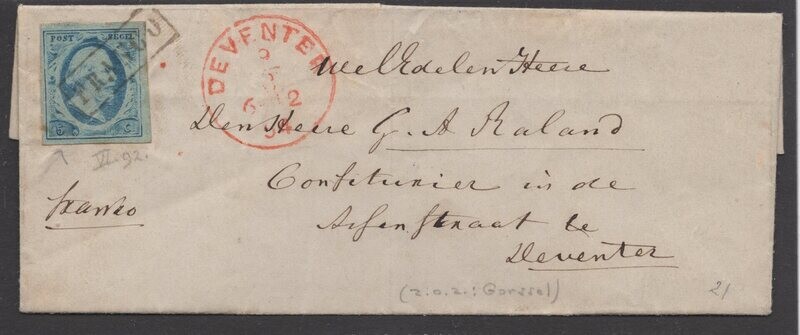 POST ZEGEL
FRANCO
5 C
DEVENTER
6 12
54
VI.92.
WelEdelen Heere
Den Heere G. A. Raland
Confiturier in de
Assenstraat te
Deventer
franko
(z.o.z.: Gorssel)
21